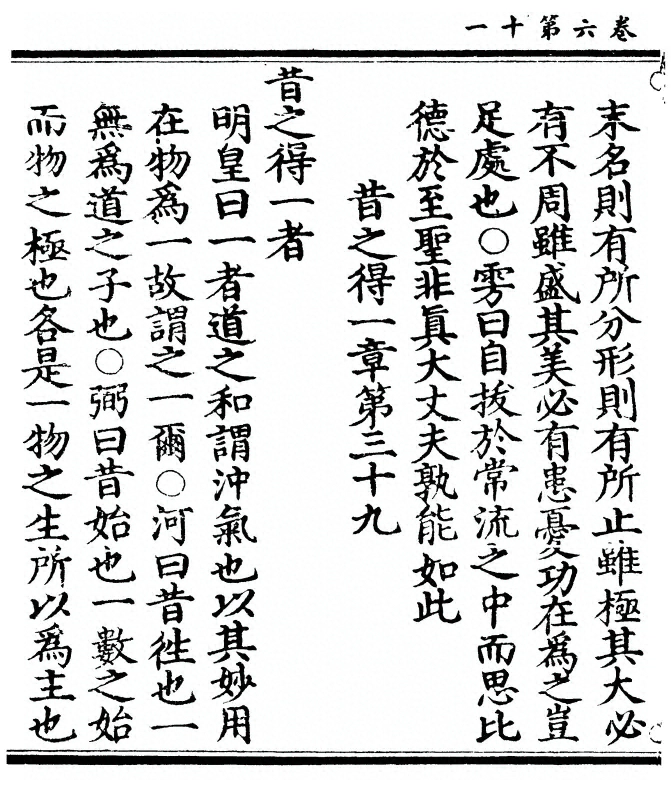 卷六第十一
末名則有所分形則有所止雖極其大必
有不周雖盛其美必有患憂功在爲之豈
足處也〇雱曰自拔於常流之中而思比
德於至聖非眞大丈夫孰能如此
昔之得一章第三十九
昔之得一者
明皇曰一者道之和謂沖氣也以其妙用
在物爲一故謂之一爾〇河曰昔徃也一
無爲道之子也〇弼曰昔始也一數之始
而物之極也各是一物之生所以爲主也